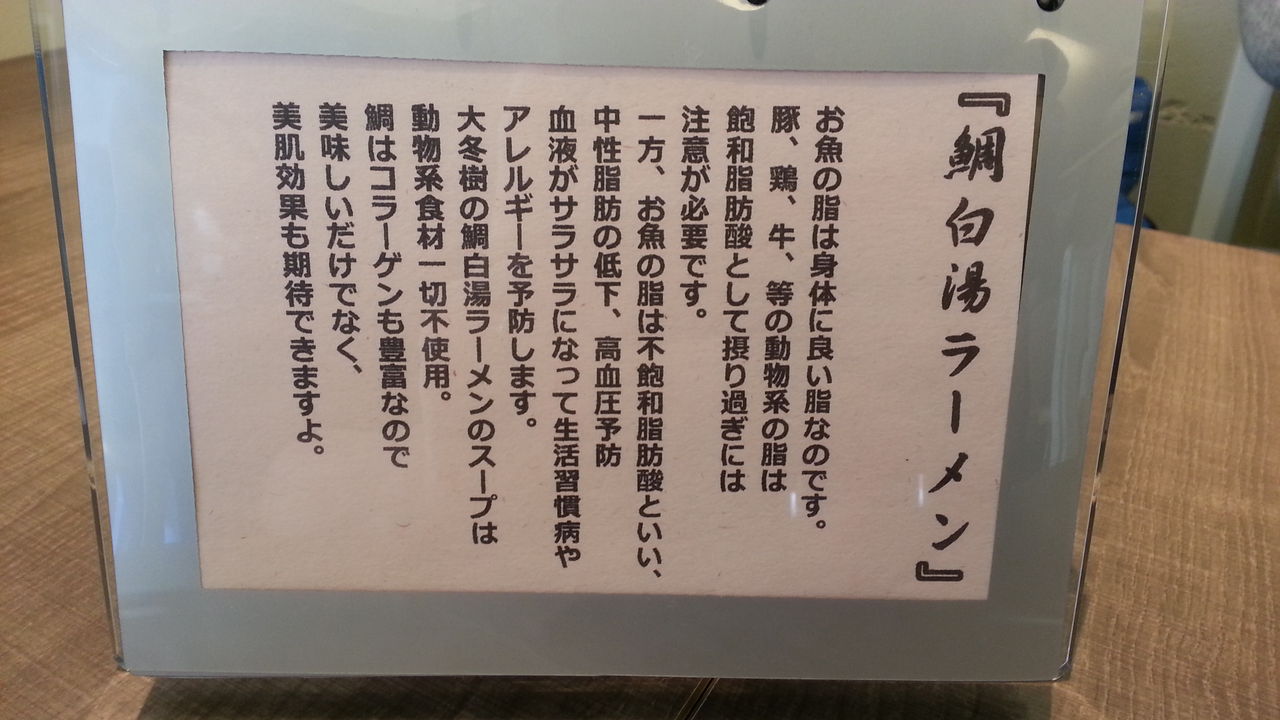 『鯛白湯ラーメン』
お魚の脂は身体に良い脂なのです。
豚、鶏、牛、等の動物系の脂は
飽和脂肪酸として摂り過ぎには
注意が必要です。
一方、お魚の脂は不飽和脂肪酸といい、
中性脂肪の低下、高血圧予防
血液がサラサラになって生活習慣病や
アレルギーを予防します。
大冬樹の鯛白湯ラーメンのスープは
動物系食材一切不使用。
鯛はコラーゲンも豊富なので
美味しいだけでなく、
美肌効果も期待できますよ。